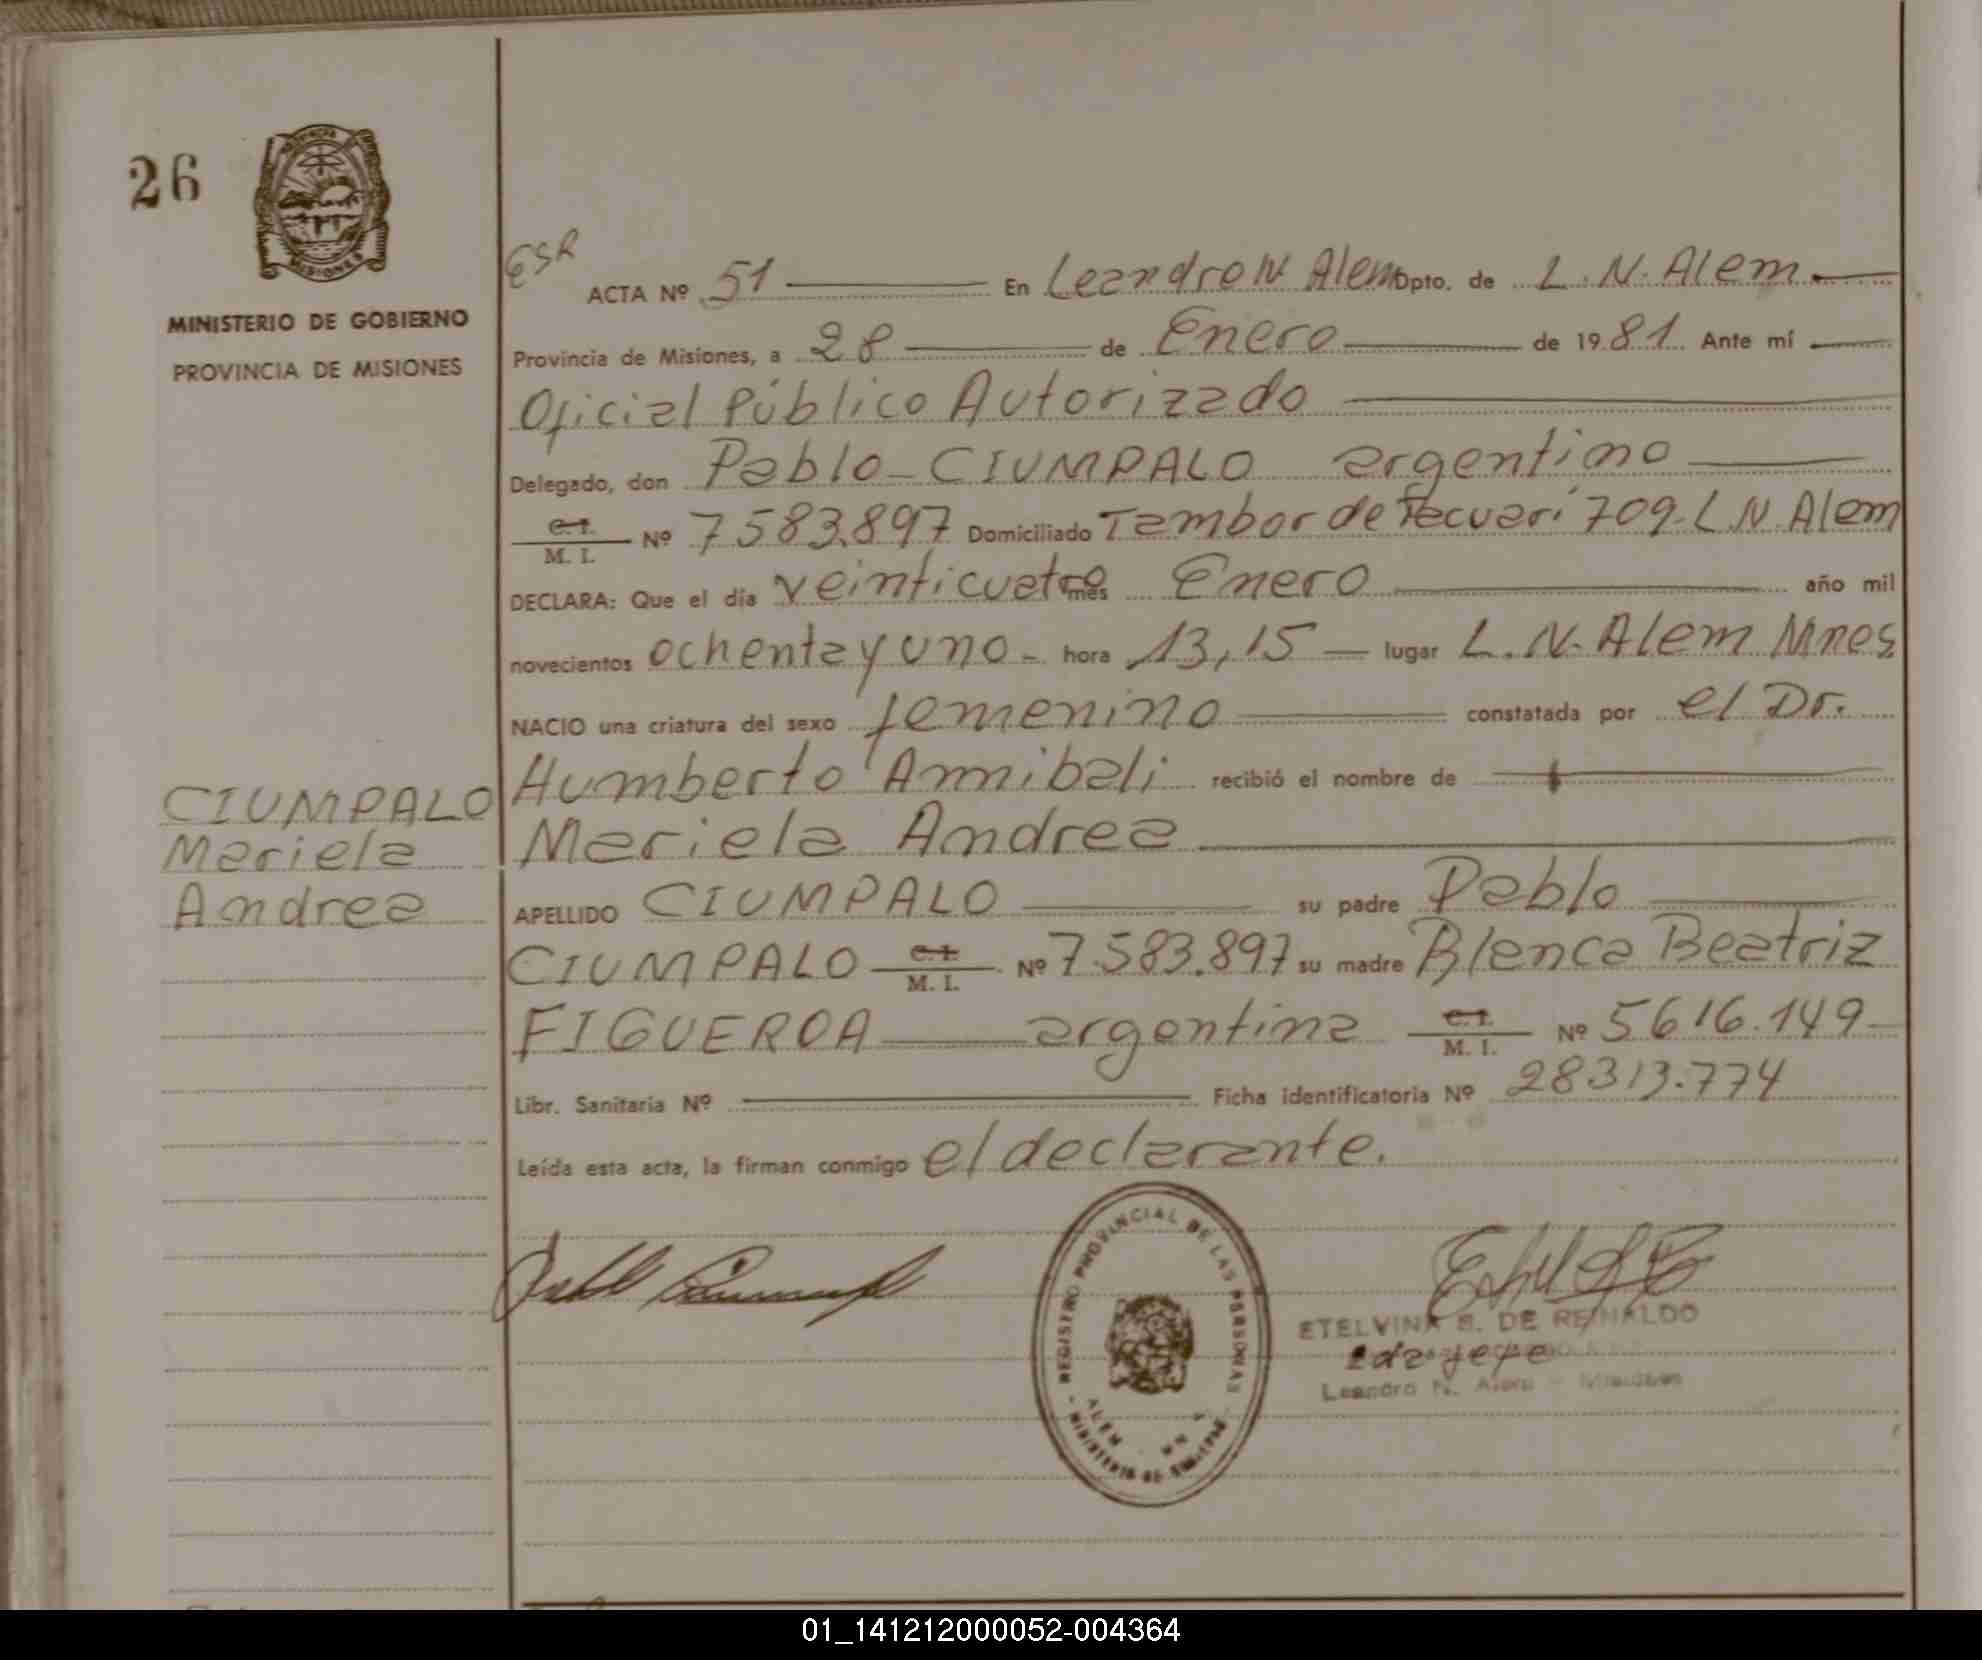 26
PROVINCIA DE
MISIONES
MINISTERIO DE GOBIERNO
PROVINCIA DE MISIONES
ESR
ACTA Nº 51 En Leandro N Alem Dpto. de L. N. Alem
Provincia de Misiones, a 28 de Enero de 1981. Ante mí
Oficial Público Autorizado
Delegado, don Pablo - CIUMPALO argentino
C. I.
M. I. Nº 7583.897 Domiciliado Tambor de Tacuarí 709- L N. Alem
DECLARA: Que el día veinticuatro mes Enero año mil
novecientos ochenta y uno - hora 13,15 — lugar L. N. Alem Mnes
NACIO una criatura del sexo femenino constatada por el Dr.
Humberto Annibali recibió el nombre de
Mariela Andrea
CIUMPALO
Mariela
Andrea
APELLIDO CIUMPALO su padre Pablo
CIUMPALO C. I. M. I. Nº 7.583.897 su madre Blanca Beatriz
FIGUEROA argentina C. I. M. I. Nº 5616.149
Libr. Sanitaria Nº Ficha identificatoria Nº 28313.774
Leída esta acta, la firman conmigo el declarante.
REGISTRO PROVINCIAL DE LAS PERSONAS
ALEM
MINISTERIO DE GOBIERNO
ETELVINA S. DE REINALDO
2da jefe
Leandro N. Alem - Misiones
01_141212000052-004364